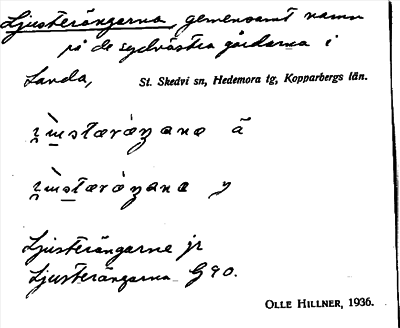 Ljusterängarna gemensamt namn
på de sydvästra gårdarna i
Landa, St. Skedvi sn, Hedemora tg, Kopparbergs län.
ä
y
Ljusterängarne jr
Ljusterängarna G 90.
OLLE HILLNER, 1936.